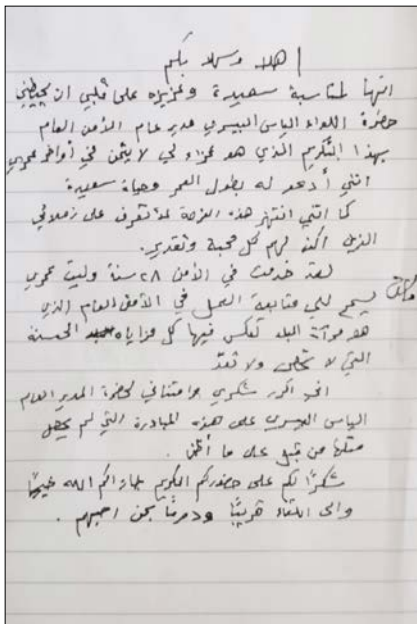 اهلا وسهلا بكم
انها لمناسبة سعيدة وعزيزة على قلبي ان يحيطني
حضرة اللواء الياس البيسري مدير عام الأمن العام
بهذا التكريم الذي هو عزاء لي لا يثمن في أواخر عمري
انني أدعو له بطول العمر وحياة سعيدة
كما انني انتهز هذه الفرصة لأتعرف على زملائي
الذين اكن لهم كل محبة وتقدير.
لقد خدمت في الأمن ٢٨ سنة وليت عمري
يسمح لي متابعة العمل في الأمن العام الذي
هو مرآة البلد تعكس فيها كل مزاياه الحسنة
التي لا تحصى ولا تعدّ
اني اكرر شكري وامتناني لحضرة المدير العام
الياس البيسري على هذه المبادرة التي لم يحصل
مثلها من قبل على ما أظن.
شكرًا لكم على حضوركم الكريم جازاكم الله خيرًا
والى اللقاء قريبًا ودمتم بمن احبهم.